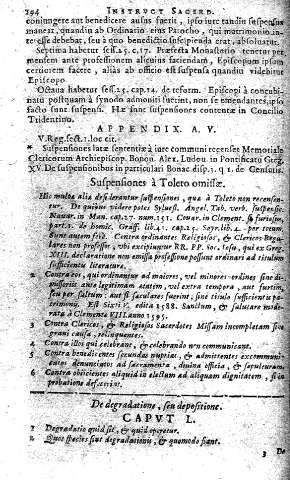 294 INSTRUCT SACERD.
coniungere aut benedicere ausus fuerit, ipso iure tandiu suspensus
maneat, quandiu ab Ordinario eius Parocho, qui matrimonio in-
teresse debebat, seu à quo benedictio suscipienda erat, absoluatur.
Septima habetur sess.25. c.17. Præfecta Monasterio tenetur per
mensem ante professionem alicuius faciendam, Episcopum ipsum
certiorem facere, alias ab officio est suspensa quandiu videbitur
Episcopo
Octaua habetur sess.25. cap.14. de reform. Episcopi à concubi-
natu postquam à synodo admoniti fuerint, non se emendantes, ipso
facto sunt suspensi. Hæ sunt suspensiones contentæ in Concilio
Tridentino.
APPENDIX. A. V.
V. Reg. sect. 1. loc cit.
* Suspensiones latæ sententiæ à iure communi recenset Memoriale
Clericorum Archiepiscop. Bonon. Alex. Ludou. in Pontificatu Greg.
XV. De suspensionibus in particulari Bonac. disp.3. q 1. de Censuris.
Suspensiones à Toleto omissæ.
Hic multa alia desiderantur suspensiones, quæ à Toleto non recensen-
tur. De quibus videre potes Syluest. Ang. Tab. verb. suspensio.
Nauar. in Man. cap.27. num.151. Couar. in Clement. si furiosus,
part.1. de homic. Graff. lib. 41. cap.25. Sayr. lib.4. per totum.
Sunt autem hæ. Contra ordinantes Religiosos, & Clericos Regu-
lares non professos, ubi excipiuntur RR. PP. Soc. Iesu, qui ex Greg.
XIII. declaratione non emissa professione possunt ordinari ad titulum
sufficientis literaturæ.
2 Contra eos, qui ordinantur ad maiores, vel minores ordines sine di-
missoriis ante legitimam ætatem, vel extra tempora, aut furtim,
seu per saltum: aut si sæculares fuerint, sine titulo sufficientis pa-
trimonij. Ex Sixti V. edita 1588. Sanctum, & salutare modera-
ta à Clemente VIII. anno 1595.
3 Contra Clericos, & Religiosos Sacerdotes Missam incompletam sine
graui causa, relinquentes.
4 Contra illos qui celebrant, & celebrando non communicant.
5 Contra benedicentes secundas nuptias, & admittentes excommuni-
catos denunciatos ad sacramenta, diuina officia, & sepulturam.
6 Contra obiicientes aliquid in electum ad aliquam dignitatem, si in
probatione defecerint.
De degradatione, seu depositione.
CAPVT L.
1 Degradatio quid sit, & quid operetur.
2 Quot species sint degradationis, & quomodo fiant.
3 De